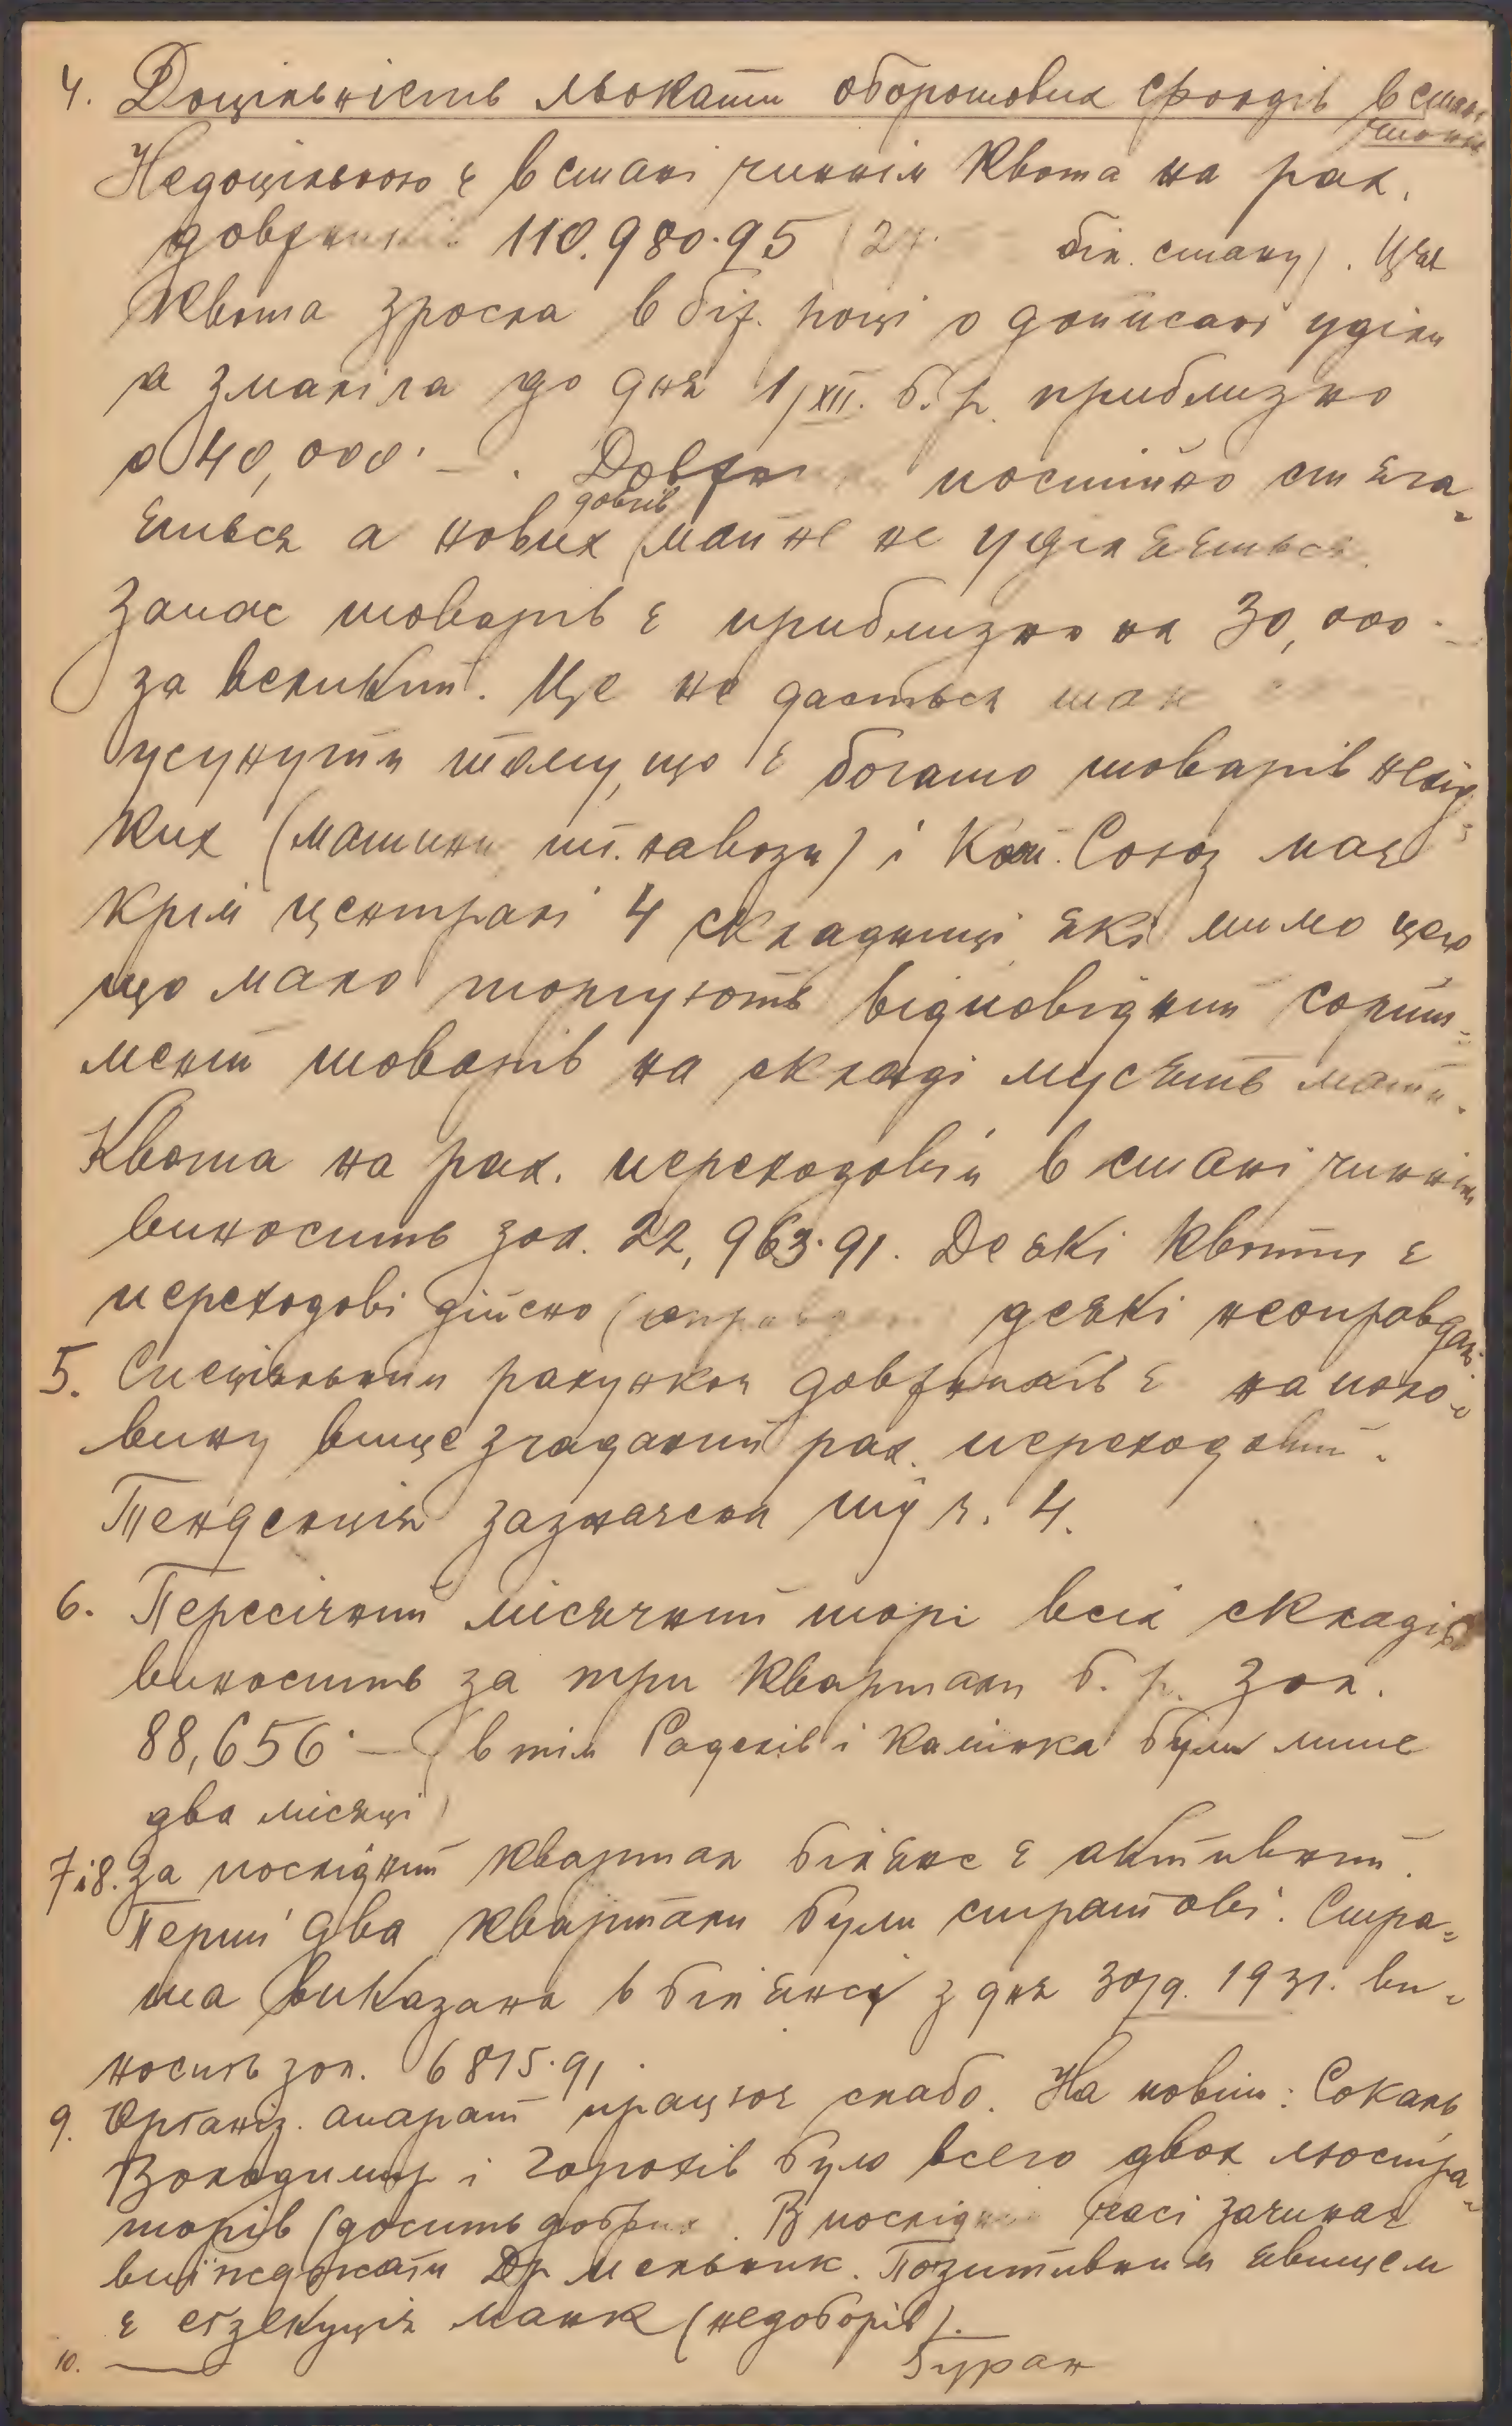 4. Доцільність льокати оборотових фондів в стані
чиннім
Недоцільною є в стані чиннім квота на рах.
довжників 110.980.95 (24 біл. стану). Ця
квота зросла в біж. році о дописані уділи
а змаліла до дня 1/XII. б. р. приблизно
о 40,000.— . Довги постійно стяга-
ється а нових довгів майже не уділяється.
Запас товарів є приблизно на 30,000.—
за великий. Це не дасться так
усунути тому, що є богато товарів невід-
ких (машини, шт. навози) і Кош. Союз має
крім централі 4 складниці які мимо цего
що мало торгують відповідний сорти-
мент товарів на складі мусять мати.
Квота на рах. переходовім в стані чиннім
виносить зол. 22,963.91. Деякі квоти є
переходові дійсно (оправдані деякі неоправдані
5. Спеціяльним рахунком довжників є на поло-
вину вище згаданий рах. переходовий.
Тенденція зазначена під ч. 4.
6. Пересічний місячний торг всіх складів
виносить за три квартали б. р. зол.
88,656.— (в тім Радехів і Камінка були лише
два місяці)
7 і 8. За послідний квартал білянс є активний.
Перші два квартали були стратові. Стра-
та виказана в білянсі з дня 30/9. 1931. ви-
носить зол. 6815.91.
9. Організ. апарат працює слабо. На повіти: Сокаль
Володимир і Горохів було всего двох люстра-
торів (досить добрих). В послідних часі зачинає
виїжджати Др Мельник. Позитивним явищем
є екзекуція манк (недоборів).
10. —
Буран